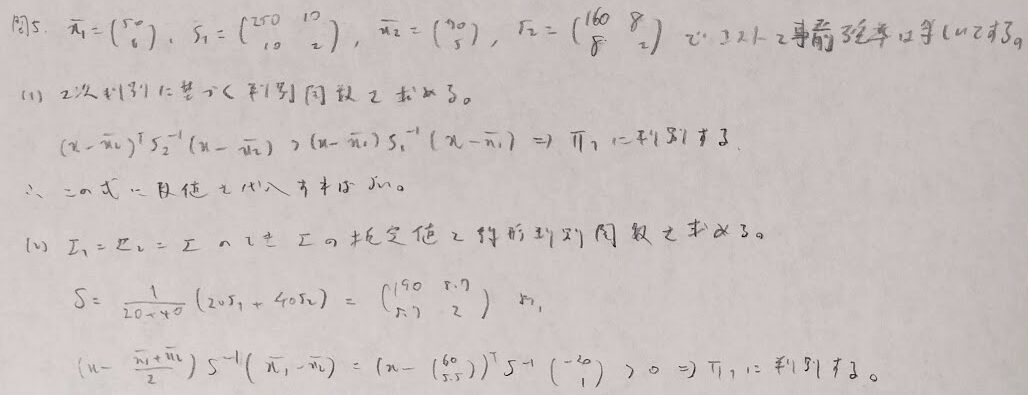 問5. x̄₁ = (50 6), S₁ = (250 10 10 2), x̄₂ = (70 5), S₂ = (160 8 8 2) で コストと事前確率は等しいとする。
(1) 2次判別に基づく判別関数を求める。
(x - x̄₂)ᵀ S₂⁻¹ (x - x̄₂) > (x - x̄₁) S₁⁻¹ (x - x̄₁) ⇒ Π₁ に判別する.
∴ この式に数値を代入すればよい。
(2) Σ₁ = Σ₂ = Σ のとき Σ の推定値と線形判別関数を求める。
S = 1/(20+40) (20S₁ + 40S₂) = (190 8.7 8.7 2) より,
(x - (x̄₁ + x̄₂)/2) S⁻¹ (x̄₁ - x̄₂) = (x - (60 5.5))ᵀ S⁻¹ (-20 1) > 0 ⇒ Π₁ に判別する。